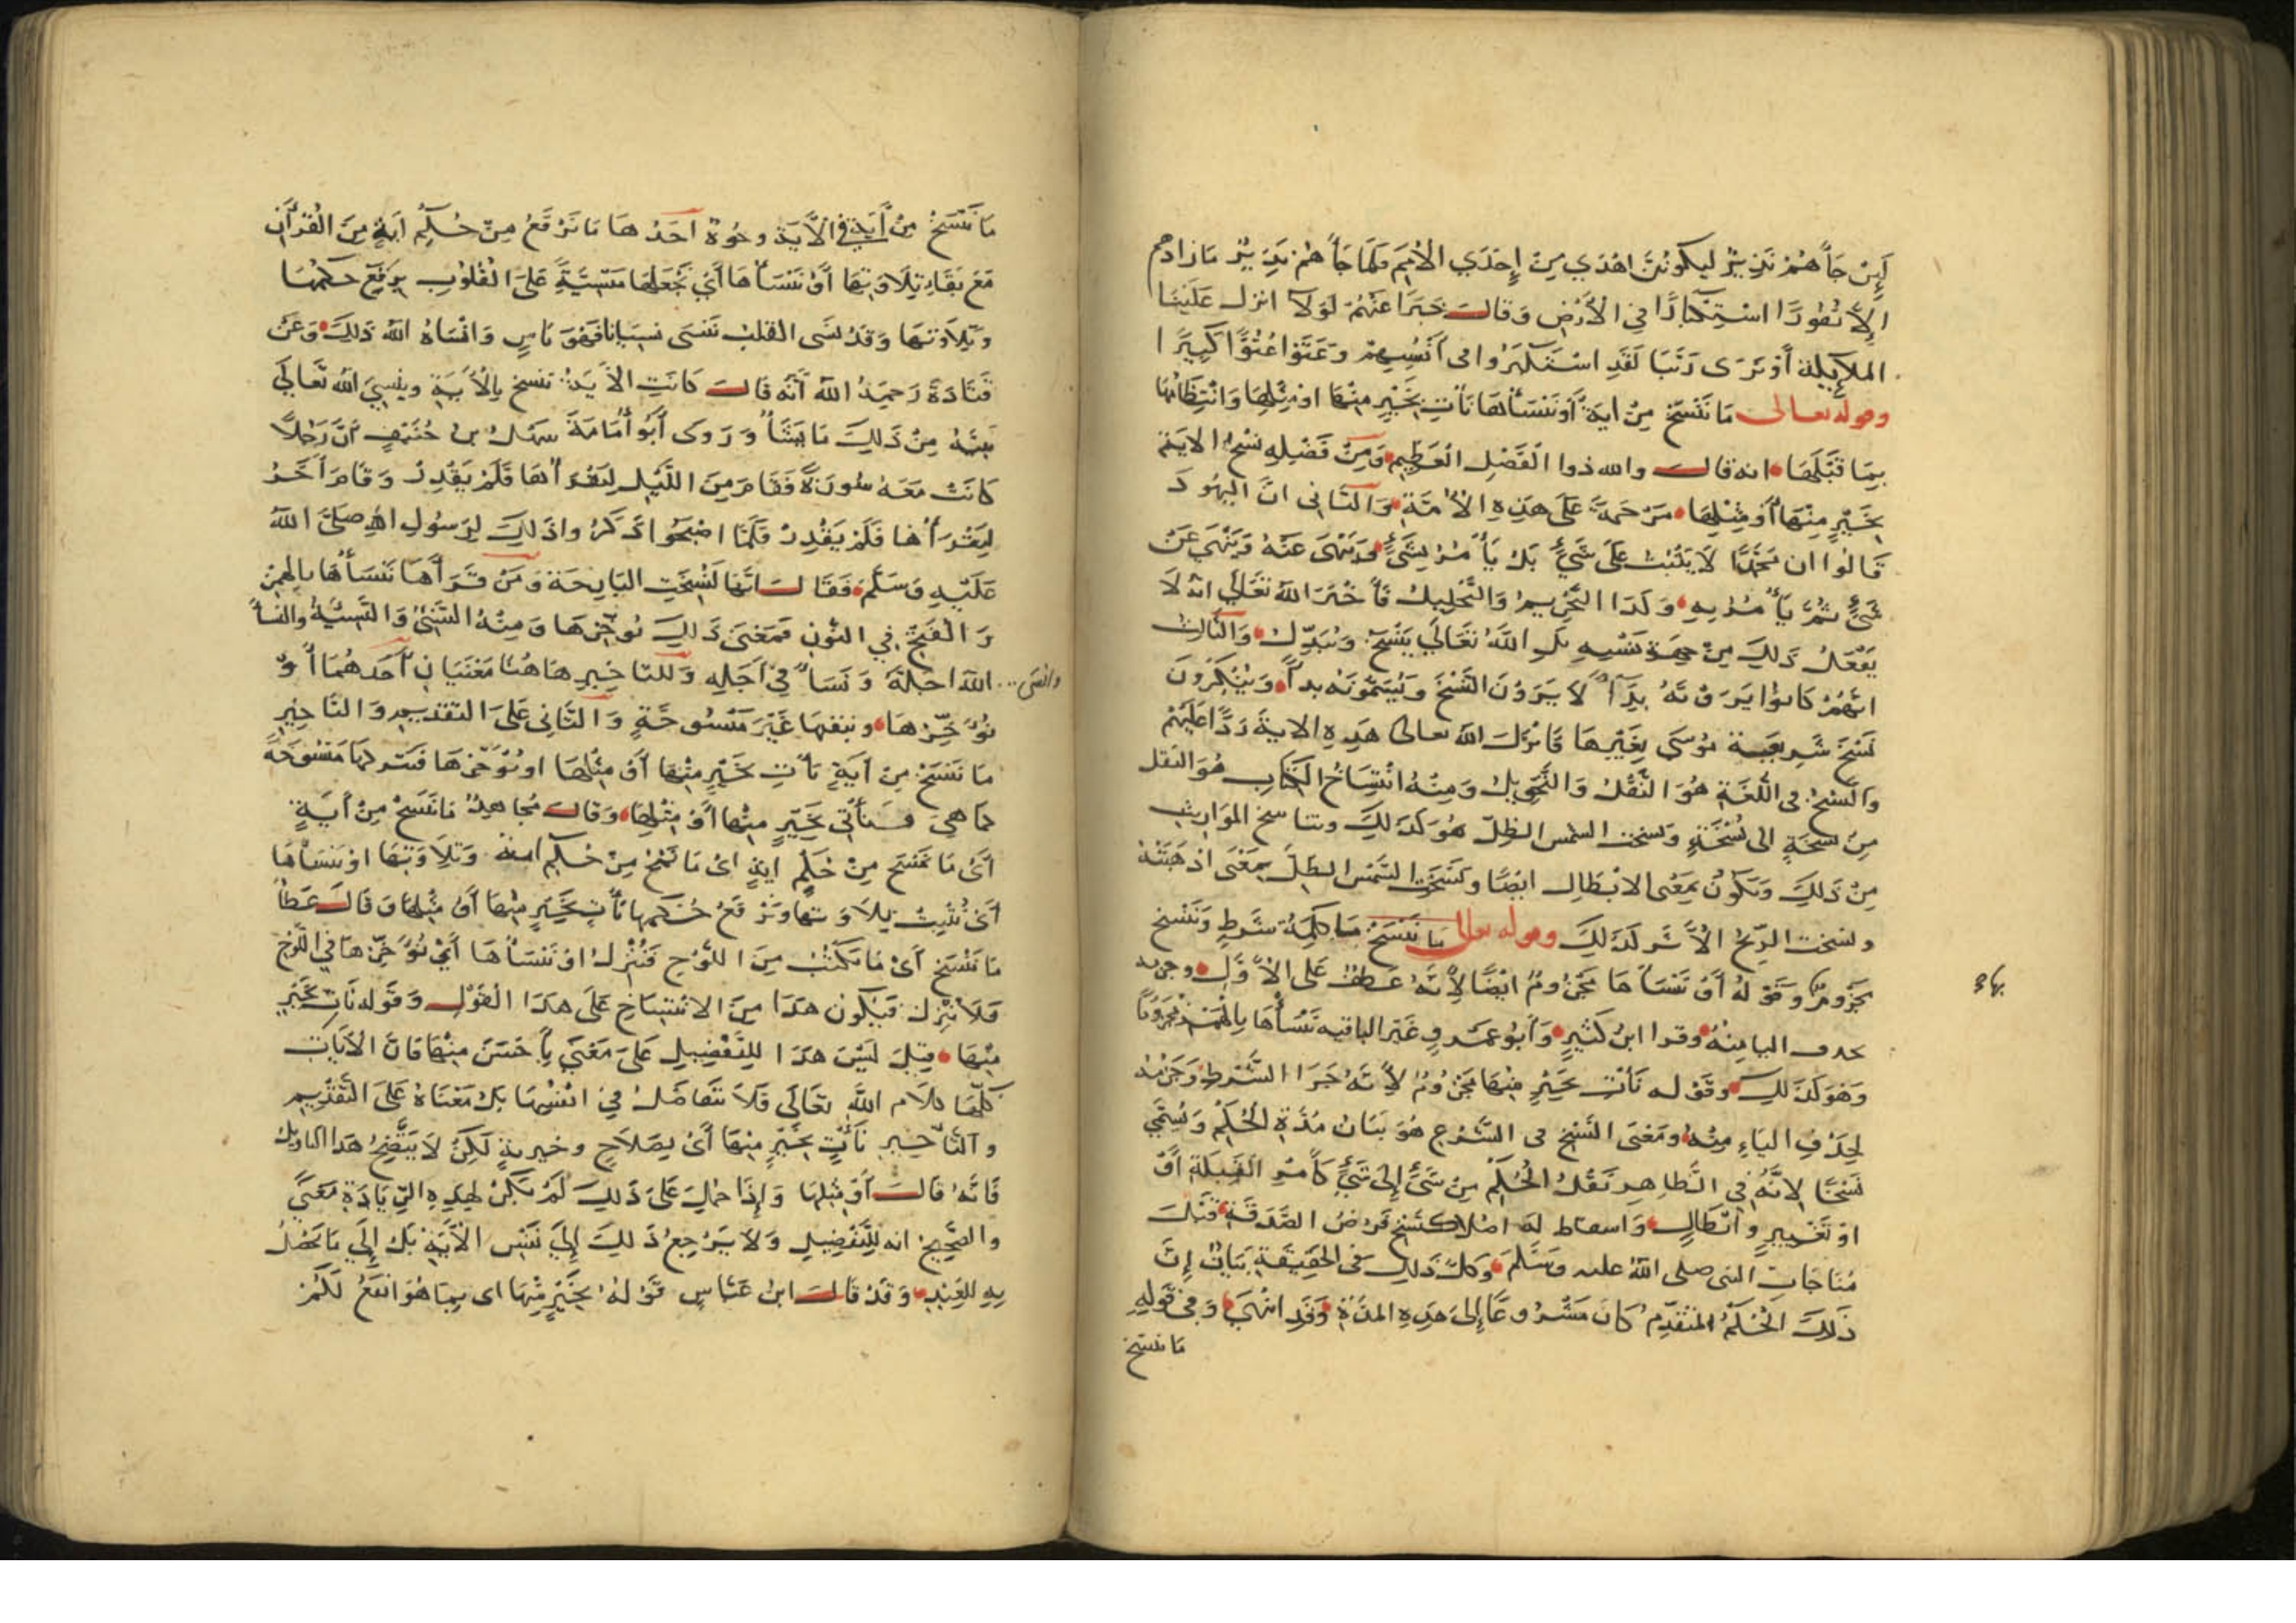 لَئِنْ جَآءَهُمْ نَذِيرٌ لَيَكُونُنَّ اهْدَي مِنْ إِحْدَي الأُمَمِ فَلَمَّا جَآءَهُمْ نَذِيرٌ مَا زَادَهُم
إِلاَّ نُفُورًا اسْتِكْبَارًا فِي الأَرْضِ وَقَالَ خَبَرًا عَنْهُمْ لَوْلاَ انزل عَلَيْنَا
الملآيكة أَوْ نَرَى رَبَّنَا لَقَدِ اسْتَكْبَرُوا فى أَنْفُسِهِمْ وَعَتَوْا عُتُوًّا كَبِيرًا
وقوله تعالى مَا نَنْسَخْ مِنْ ايَةٍ أَوْ نَنْسَأْهَا نَأْتِ بِخَيْرٍ مِنْهَا اوْ مِثْلِهَا وَانْتِظَامُهَا
بِمَا قَبْلَهَا انه قال والله ذوا الْفَضْلِ الْعَظِيمِ وَمِنْ فَضْلِهِ نَسْخُ الايَةِ
بِخَيْرٍ مِنْهَا أَوْ مِثْلِهَا مَرْحَمَةً عَلَى هَذِهِ الأُمَّةِ وَالثَّانى انَّ اليَهُودَ
قَالُوا ان مُحَمَّدًا لاَ يَثْبُتُ عَلَى شَيْءٍ بَلْ يَأْمُرُ بِشَيْءٍ وَيَنْهَى عَنْهُ وَيَنْهَي عَنْ
شَيْءٍ ثُمَّ يَأْمُرُ بِهِ وَكَذَا التَّحْرِيمُ وَالتَّحْلِيلُ فَأَخْبَرَ اللّهُ تَعَالَي انهُ لاَ
يَفْعَلُ ذَلِكَ مِنْ جِهَةِ نَفْسِهِ بَلِ اللّهُ تَعَالَي يَنْسَخُ وَيُبَدِّلُ وَالثَّالِثُ
انَّهُمْ كَانُوا يَرَوْنَهُ بَدَآءً لاَ يَرَوْنَ النَّسْخَ وَيُسَمُّونَهُ بدآءً وَيُنْكِرُونَ
نَسْخَ شَرِيعَةِ مُوسَى بِغَيْرِهَا فَانْزَلَ اللّه تعالى هَذِهِ الاية رَدًّا عَلَيْهِمْ
وَالنَّسْخُ فى اللُّغَةِ هُوَ النَّقْلُ وَالتَّحْوِيلُ وَمِنْهُ انْتِسَاخُ الْكِتَابِ هُوَ النقل
مِنْ نسْخَةٍ الى نُسْخَةٍ وَنسخت الشمس الظِلَّ هُوَ كَذَلِكَ وتناسخ المَوَاريث
مِنْ ذَلِكَ وَيَكُونُ بِمَعْنَى الابْطَالِ ايْضًا وَنَسَخَتِ الشَّمْسُ الظِلَّ بِمَعْنَى اذْهَبَتْهُ
ونسخت الرِّيحُ الأَثَرَ كَذَلِكَ وقوله تعالى مَا نَنْسَخْ مَا كَلِمَةُ شَرْطٍ وَنَنْسَخ
بهَا
مَجْزُومٌ وَقَوْلُهُ أَوْ نَنْسَأْهَا مَجْزُومٌ ايْضًا لأَنَّهُ عَطْفٌ عَلَى الأَوَّلِ وجزمه
بحذف اليا مِنْهُ وَقرا ابْنُ كَثِيرٍ وَأَبُو عَمْرٍو غَيْرَ الباقيه نَنْسَأْهَا بِالْهَمْزِ مَجْزُومًا
وَهُوَ كَذَلِكَ وقَوْله نَأْتِ بِخَيْرٍ مِنْهَا مَجْزُومٌ لأَنَّهُ جَزَا الشَّرْطِ وَجَزْمُهُ
لِحَذْفِ اليَاءِ مِنْهُ وَمَعْنَى النَّسْخِ فى الشَّرْعِ هُوَ بَيَانُ مُدَّةِ الْحُكْمِ وَسُمِّيَ
نَسْخًا لاَنَّهُ فِي الظَّاهِرِ نَقْلُ الْحُكْمِ مِنْ شَيْءٍ إِلَى شَيْءٍ كَأَمْرِ القِبْلَةِ أَوْ
اوْ تَغْيِيرٍ وَابْطَالٍ وَاسْقَاط لَهُ اصْلاً كَنَسْخِ فَرْضِ الصَّدَقَةِ قَبْلَ
مُنَاجَاتِ النبى صلى اللّهُ عليه وَسَلَّمَ وَكُلُّ ذَلِكَ فى الْحَقِيقَةِ بَيَانٌ إِنَّ
ذَلِكَ الْحُكْمَ المتقدِّمَ كَانَ مَشْرُوعًا إِلَى هَذِهِ المدَّةِ وَقَدِ انْتَهَى وَفِى قَوْلِهِ
مَا ننسَخ
مَا نَنْسَخْ مِنْ أَيَةٍ فِي الأَيَةِ وجُوهٌ احَدُهَا مَا نَرْفَعُ مِنْ حُكْمِ ايَةٍ مِنَ القُرْآنِ
مَعَ بَقَاءِ تِلاَوَتِهَا أَوْ نَنْسَأْهَا أَيْ نَجْعَلْهَا مَنْسِيَّةً عَلَى القُلُوبِ بِرَفْعِ حُكْمِهَا
وَتِلاَوَتِهَا وَقَدْ نسَى القلب نَنْسَى نسيَانا فَهُوَ نَاسٍ وَانْسَاهُ اللّهُ ذَلِكَ وَعَنْ
قَتَادَةَ رَحِمَهُ اللّهُ أَنَّهُ قَالَ كَانَتِ الأَيَةُ تنسخ بِالأَيَةِ وينْسِيَ اللّهُ تَعَالَى
نَبِيَّهُ مِنْ ذَلِكَ مَا يَشَآءُ وَرَوَى أَبُو أُمَامَةَ سَهْل بن حُنَيْفٍ أَنَّ رَجُلاً
كَانَتْ مَعَهُ سُورَةٌ فَقَامَ مِنَ اللَّيْلِ لِيَقْرَأَهَا فَلَمْ يَقْدِرْ وَقَامَ آخَرُ
لِيَقْرَأَهَا فَلَمْ يَقْدِرْ فَلَمَّا اصْبَحُوا ذَكَرُوا ذَلِكَ لِرَسُولِ اللّهِ صَلَّى اللّهُ
عَلَيْهِ وَسَلَّمَ فَقَالَ انَّهَا نُسِخَتِ البَارِحَةَ وَمَنْ قَرَأَهَا نَنْسَأْهَا بِالهَمْزِ
وَالْفَتْحِ فِي النُّونِ فَمَعْنَى ذَلِكَ نُؤَخِّرْهَا وَمِنْهُ النَّسِيْءُ وَالنَّسِيئَةُ والنسأ
وانسى اللّهُ اجَلَهُ وَنَسَأَ فِى اَجَلِهِ وَللتاخِيرِ هَاهُنَا مَعْنَيَانِ أَحَدهُمَا أَوْ
نُؤَخِّرْهَا ونبقهَا غَيْرَ مَنْسُوخَةٍ وَالثَّانِى عَلَى التقدِيمِ وَالتَّاخِيرِ
مَا نَنْسَخْ مِنْ آيَةٍ نَأْتِ بِخَيْرٍ مِنْهَا أَوْ مِثْلِهَا اوْ نُؤَخِّرْهَا فَنَتْركهَا مَنْسُوخَة
كمَا هِيَ فَسَنَأْتِى بِخَيْرٍ مِنْهَا أَوْ مِثْلِهَا وَقَالَ مُجَاهِدٌ مَا نَنْسَخْ مِنْ أَيَةٍ
أَىْ مَا نَنْسَخ مِنْ حُكْمِ ايَةٍ اىْ مَا نَمْحُ مِنْ حُكْمِ ايَةٍ وَتِلاَوَتِهَا اوْ نَنْسَأْهَا
أَىْ نُثْبِتْ تِلاَوَتهَا وَنَرْفَعُ حُكْمَهَا نَأْتِ بِخَيْرٍ مِنْهَا أَوْ مِثْلِهَا وَقَالَ عَطَآءُ
مَا نَنْسَخ أَىْ مَا نَكْتُبْ مِنَ اللَّوْحِ فَنُنْزِلْ اوْ نَنْسَأْهَا أَيْ نُؤَخِّرْهَا فِي اللَّوْحِ
فَلاَ نُنْزِلْ فَيَكُون هَذَا مِنَ الانْتِسَاخِ عَلَى هَذَا القَوْلِ وَقَوْله نَأْتِ بِخَيْرٍ
مِنْهَا قِيلَ لَيْسَ هَذَا لِلتَّفْضِيلِ عَلَى مَعْنَى بِأَحْسَنَ مِنْهَا فَانَّ الأَيَاتِ
كُلَّهَا كلاَم اللّهِ تَعَالَى فَلاَ تَتَفَاضَلُ فِي انْفُسِهَا بَلْ مَعْنَاهُ عَلَى التَّقْدِيمِ
وَالتَّأْخِيرِ نَأْتِ بِخَيْرٍ مِنْهَا أَىْ بِصَلاَحٍ وخيرية لَكِنْ لاَ يَتَّضِحُ هَذَا التاويل
فَانَّهُ قَالَ أَوْ مِثْلِهَا وَإِذَا حُمِلَ عَلَى ذَلِكَ لَمْ تَكُنْ لِهَذِهِ الزِّيَادَةِ مَعْنًى
والصَّحِيحُ انه لِلتَّفْضِيلِ وَلاَ يَرْجِعُ ذَلِكَ إِلَى نَفْسِ الأَيَةِ بَلْ إِلَي مَا يَحْصُلُ
بِهِ لِلْعَبْدِ وَقَدْ قَالَ ابْنُ عَبَّاسٍ قَوْلهُ بِخَيْرٍ مِنْهَا اى بِمَا هُوَ انْفَعُ لَكُمْ